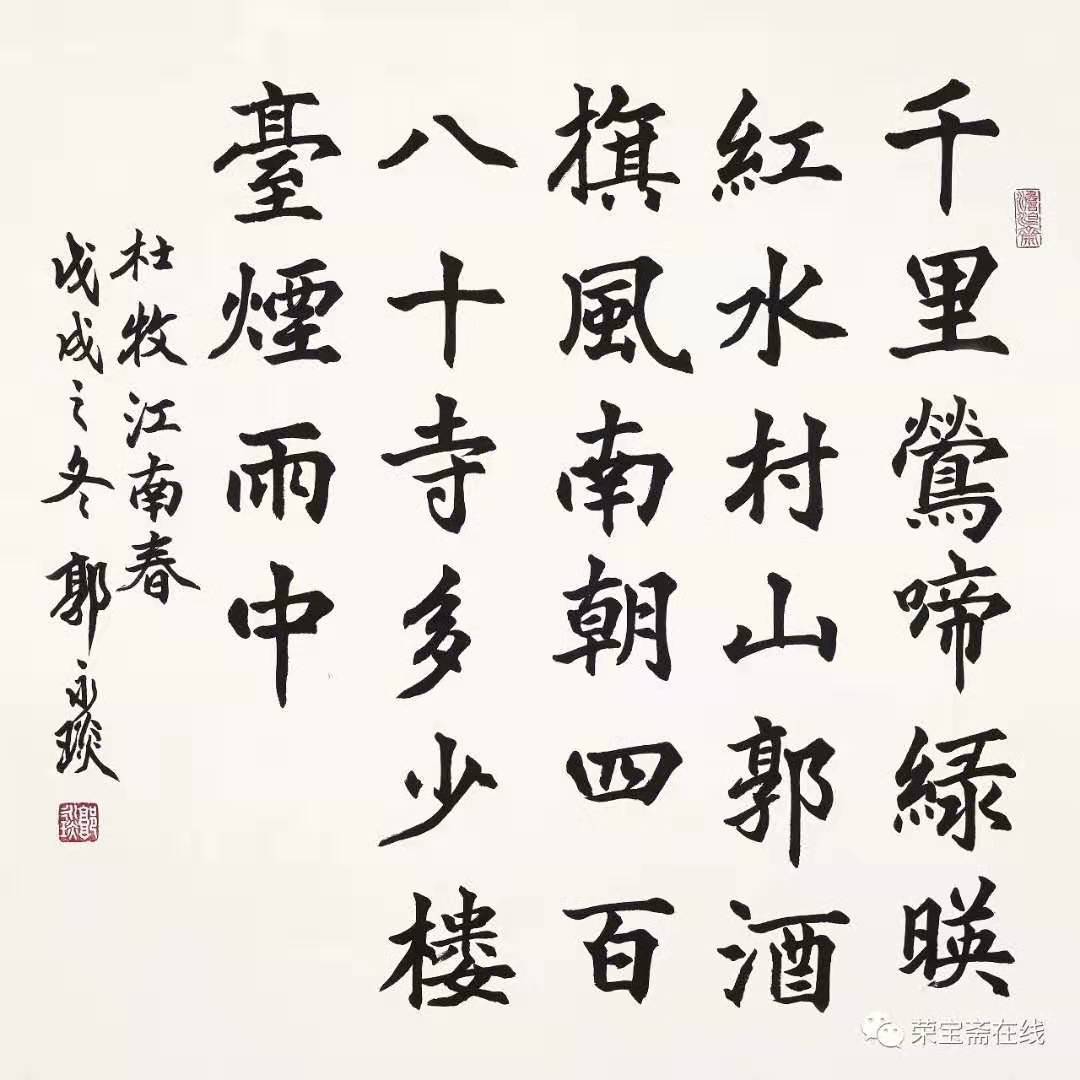 千里鶯啼緑暎
紅水村山郭酒
旗風南朝四百
八十寺多少樓
臺煙雨中
杜牧江南春
戊戌之冬郭永琰
荣宝斋在线